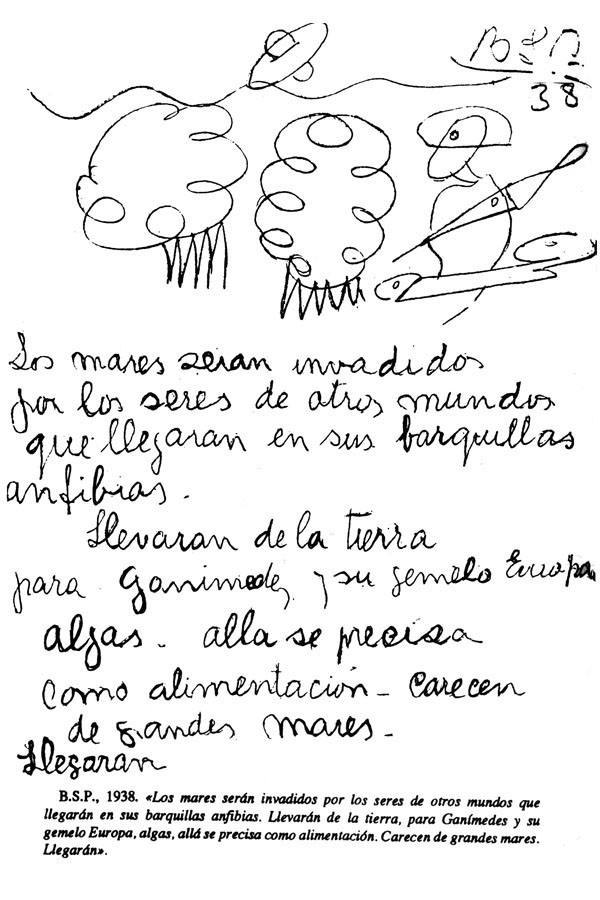 B.S.P.
38
Los mares seran invadidos
por los seres de otros mundos
que llegaran en sus barquillas
anfibias.
Llevaran de la tierra
para Ganimedes y su gemelo Europa
algas. alla se precisa
como alimentación - Carecen
de grandes mares -
Llegaran
B.S.P., 1938. «Los mares serán invadidos por los seres de otros mundos que
llegarán en sus barquillas anfibias. Llevarán de la tierra, para Ganímedes y su
gemelo Europa, algas, allá se precisa como alimentación. Carecen de grandes mares.
Llegarán».